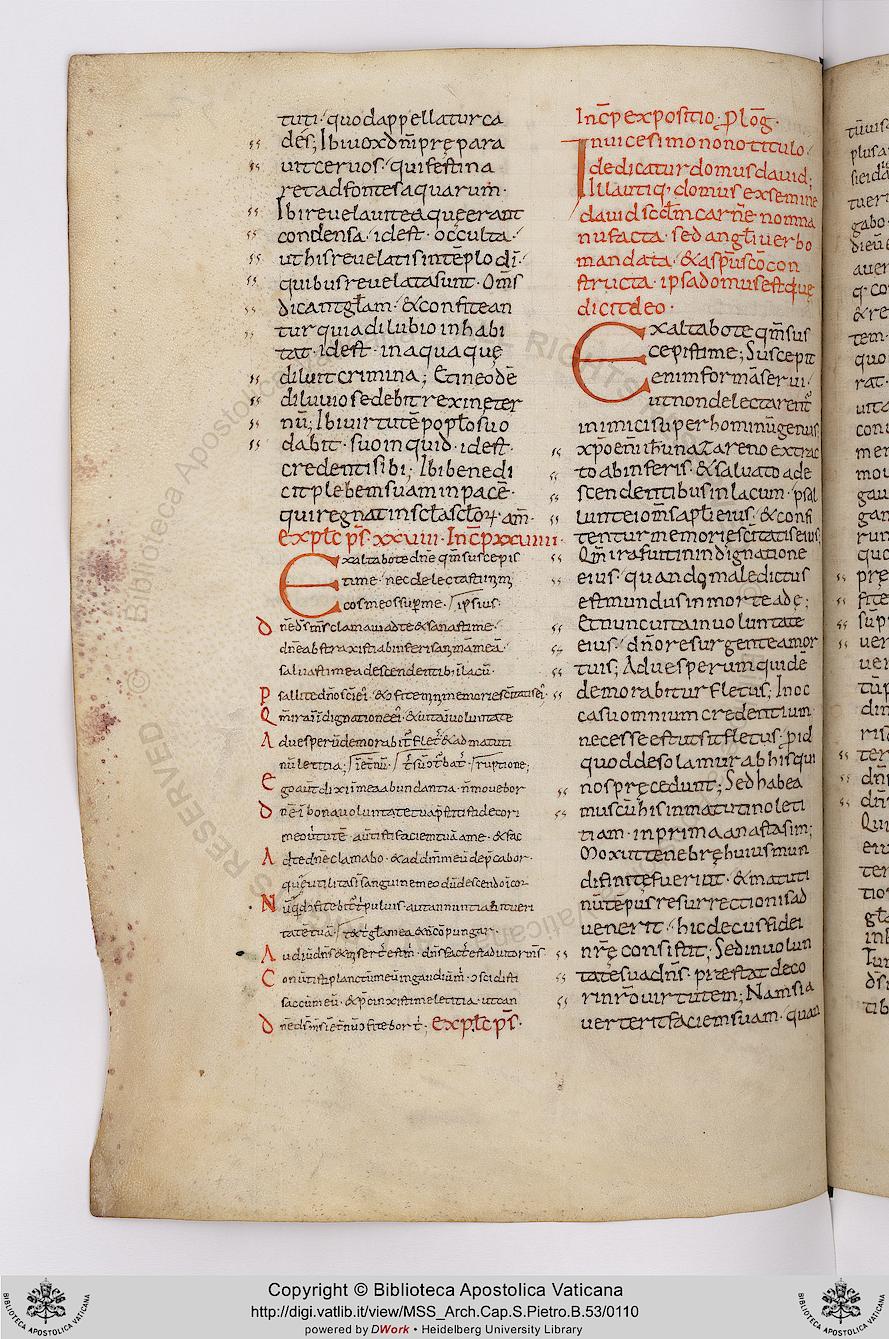 tuti · quod appellatur ca
des; Ibi vox dñi prępara
uit ceruos · qui festina
ret ad fontes aquarum ·
Ibi reuelauit ea quę erant
condensa · id est · occulta ·
ut his reuelatis in tēplo dī ·
quibus reuelata sunt · Oms
dicant glam · & confitean
tur quia diluuio inhabi
tat · id est · in aqua quę
diluit crimina; Et in eo dē
diluuio sedebit rex in ęter
nū; Ibi uirtutē poplo suo
dabit · suo inquid · id est ·
credenti sibi; Ibi benedi
cit plebem suam in pacē ·
qui regnat in scla sclorꝝ am̄ ·
explc ps̄ · xxviii · Incp xxviiii ·
Exaltabo te dne qm̄ suscepis
ti me · nec delectasti inim
cos meos sup me ·
Dne ds ms clamaui ad te & sanasti me ·
dne abstraxisti ab inferis anı̄mam meā ·
saluasti me a descendentib · ı̄ lacū ·
Psallite dno sci eı̄ · & ɔfitemini memorie scitatis eı̄ ·
Qm̄ ira ı̄ indignatione eı̄ · & uita ı̄ uoluntate
Ad uesperū demorabit̄ flet̄ & ad matuti
nū letitia;
Ego aut̄ dixi ı̄ mea abundantia · n̄ mouebor
Dne ı̄ bona uoluntate tua p̄stitisti decori
meo uı̄tutē · auı̄tisti faciem tuā a me · & fac
Ad te dne clamabo · & ad dm̄ meū dep̄cabor ·
quę utilitas ı̄ sanguine meo dū descendo ı̄ cor
Nūqd ɔfitebit̄ t̄ puluis · aut annuntiabit ueri
tatē tuā
Audiuı̄ dns & misert̄ est m̄ · dns fact̄ est adiutor ms̄
Conūtisti planctū meū ı̄ gaudiū m̄ · ɔscidisti
saccū meū · & p̄cinxisti me letitia · ut can
Dne ds ms ı̄ et̄nū ɔfitebor t̄ · explc ps̄ ·
Incp expositio; Ploḡ ·
In uicesimo nono titulo
dedicatur domus dauid;
Illa utiq; domus ex semine
dauid scdm carnē nomna
nu facta · sed angli uerbo
mandata · & a spu sco con
structa · ipsa domus est quę
dicit deo ·
Exaltabo te qm̄ sus
cepisti me; Suscepit
enim formā serui ·
ut non delectarent̄
inimici super hominū genus
xpo eni ihu nazareno extrac
to ab inferis · & saluato a de
scendentibus in lacum · psal
lunt ei oms apli eius · & confi
tentur memorie scitatis eius
Qm̄ ira fuit in indignatione
eius · quando maledictus
est mundus in morte adę;
Et nunc uita in uoluntate
eius · dno resurgente a mor
tuis; Ad uesperum quidē
demorabitur fletus; In oc
casu omnium credentium
necesse est ut sit fletus · p id
quod desolamur ab his qui
nos pręcedunt; Sed habea
mus cū his in matutino leti
tiam · in prima anastasim;
Mox ut tenebrę huius mun
di finitę fuerint · & matuti
nū tēpus resurrectionis ad
uenerit · hic decus fidei
nr̄ę consistit; Sed in uolun
tate sua dns · pręstat deco
ri nr̄o uirtutem; Nam si a
uerterit faciem suam · quan
Copyright © Biblioteca Apostolica Vaticana
http://digi.vatlib.it/view/MSS_Arch.Cap.S.Pietro.B.53/0110
powered by DWork • Heidelberg University Library